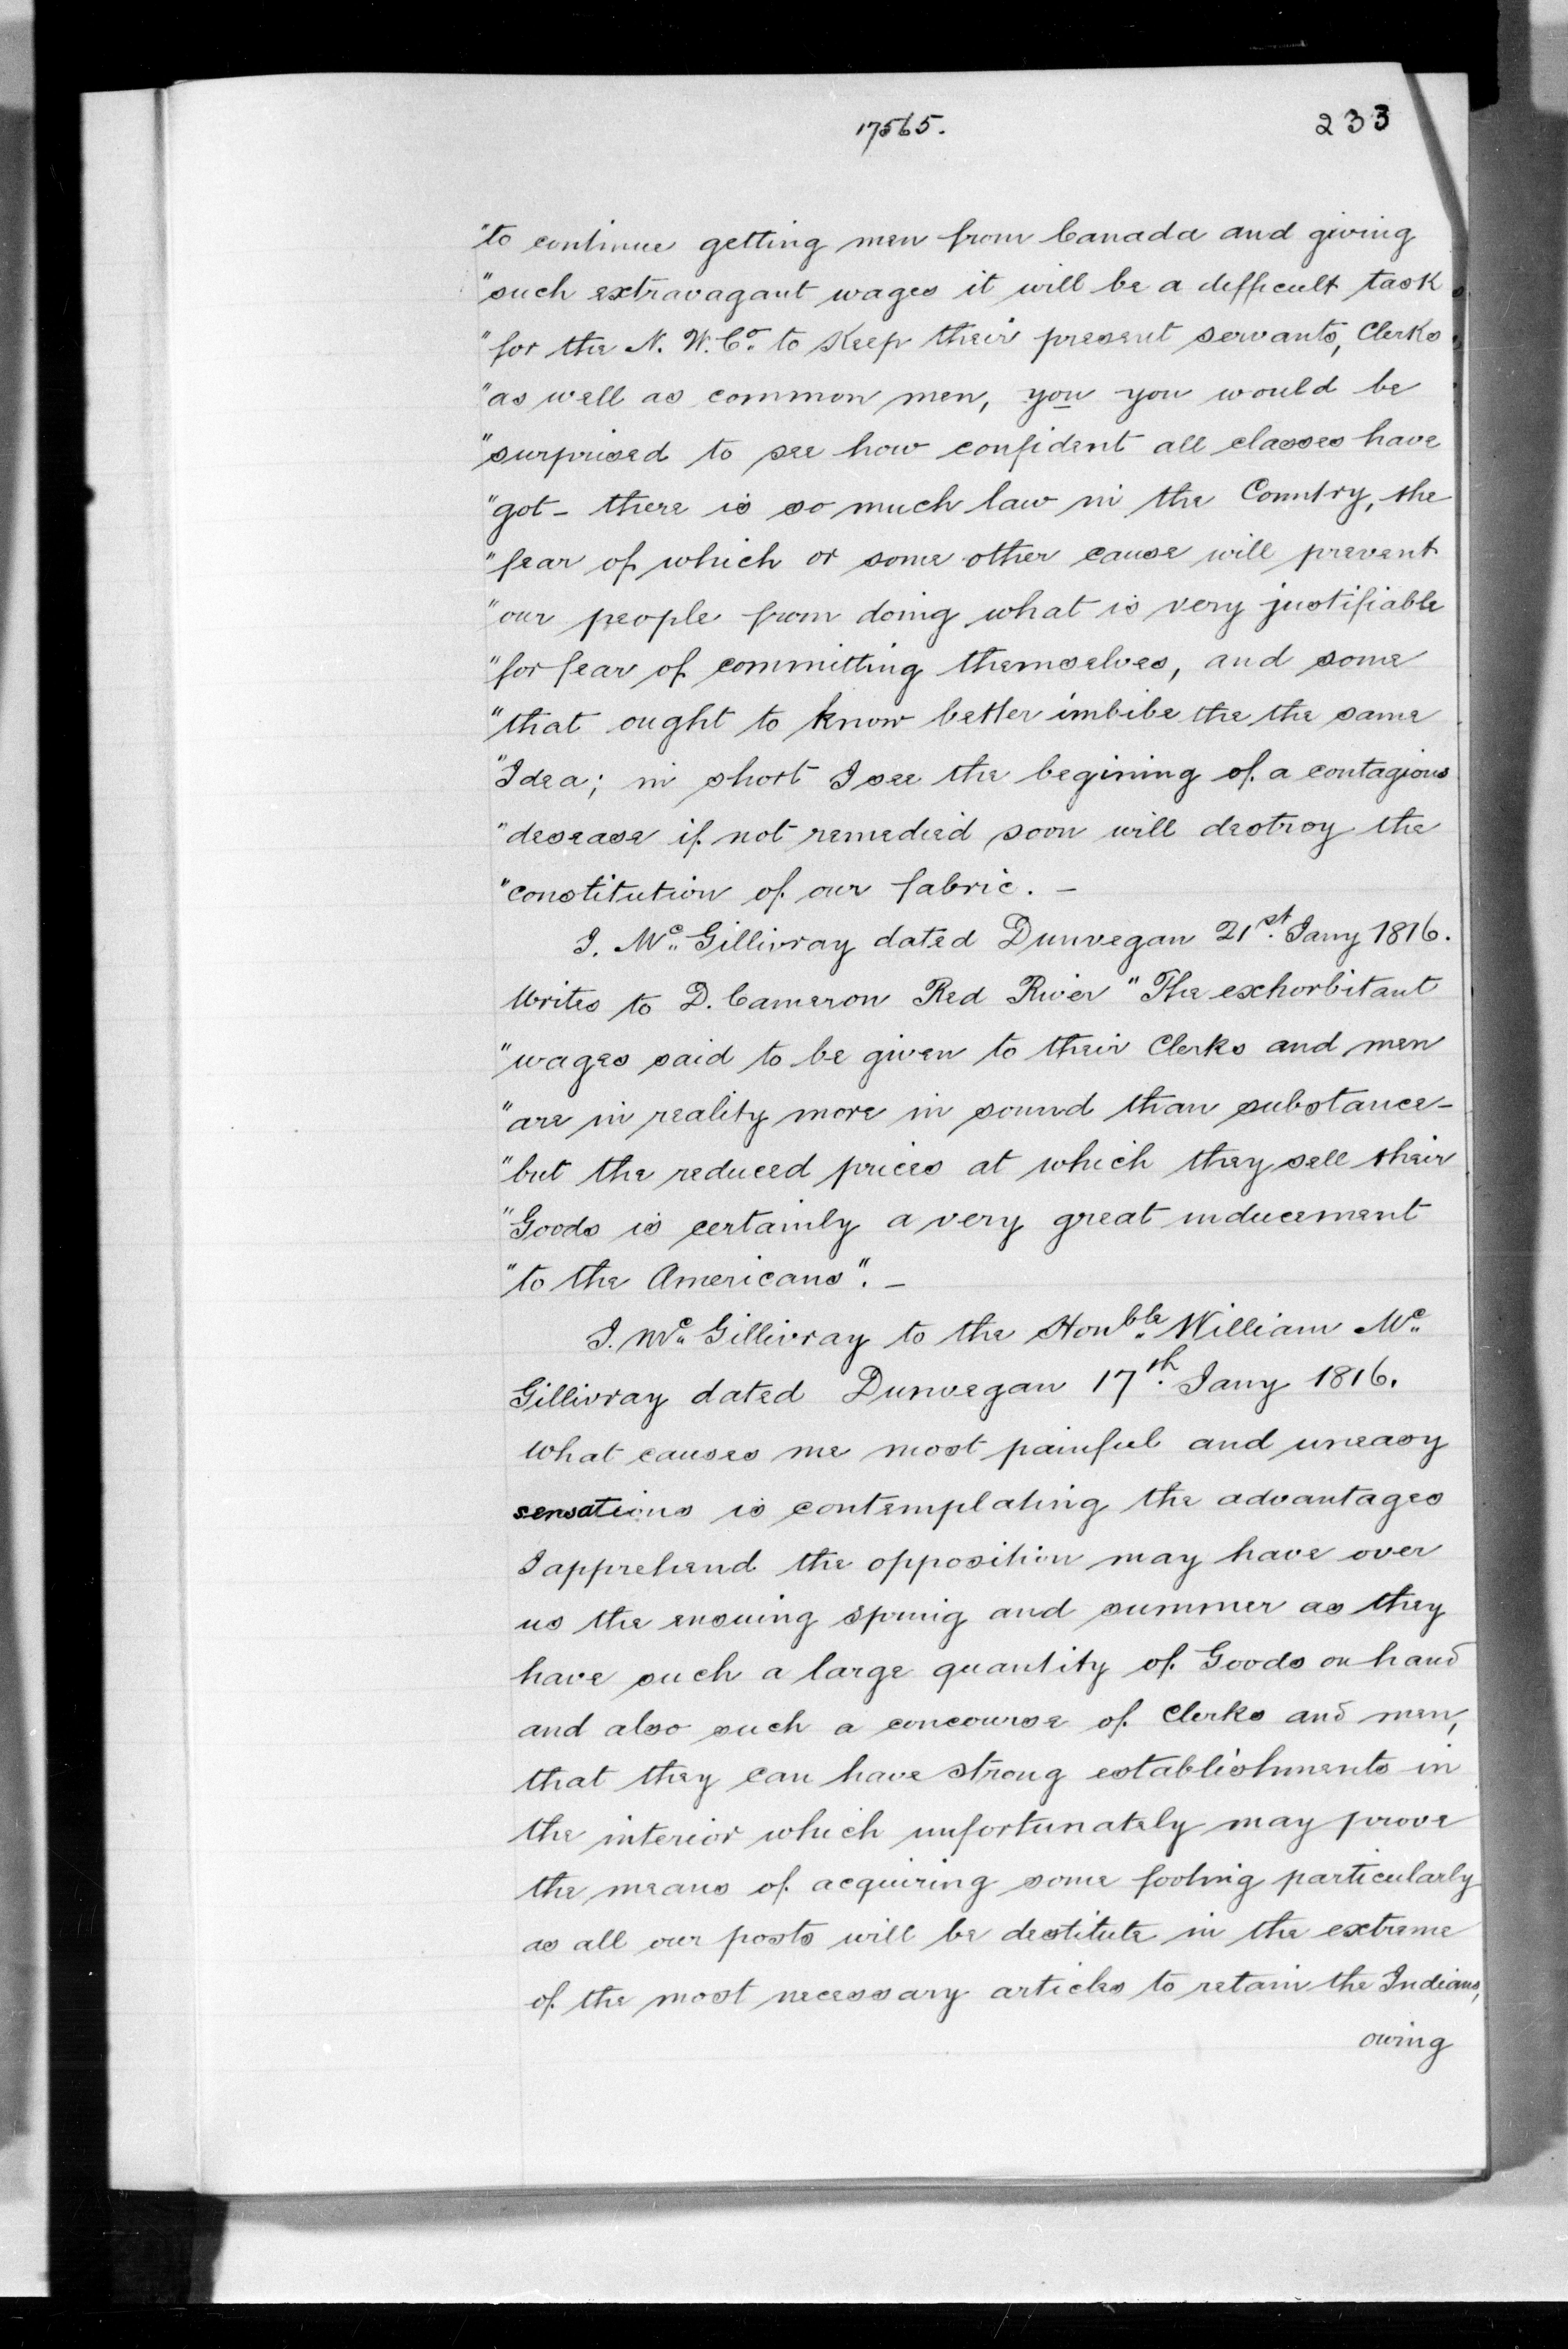 17565.
233
"to continue getting men from Canada and giving
"such extravagant wages it will be a difficult task
"for the N. W. Co. to Keep their present servants, Clerks
"as well as common men, you you would be
"surprised to see how confident all classes have
"got - there is so much law in the Country, the
"fear of which or some other cause will prevent
"our people from doing what is very justifiable
"for fear of committing themselves, and some
"that ought to know better imbibe the the same
"Idea; in short I see the begining of a contagious
"desease if not remedied soon will destroy the
"constitution of our fabric. -
J. Mc. Gillivray dated Dunvegan 21st. Jany 1816.
Writes to D. Cameron Red River "The exhorbitant
"wages said to be given to their Clerks and men
"are in reality more in sound than substance-
"but the reduced prices at which they sell their
"Goods is certainly a very great inducement
"to the Americans". -
J. Mc. Gillivray to the Honble. William Mc.
Gillivray dated Dunvegan 17th. Jany 1816.
What causes me most painful and uneasy
sensations is contemplating the advantages
I apprehend the opposition may have over
us the ensuing spring and summer as they
have such a large quantity of Goods on hand
and also such a concourse of Clerks and men,
that they can have strong establishments in
the interior which unfortunately may prove
the means of acquiring some footing particularly
as all our posts will be destitute in the extreme
of the most necessary articles to retain the Indians,
owing